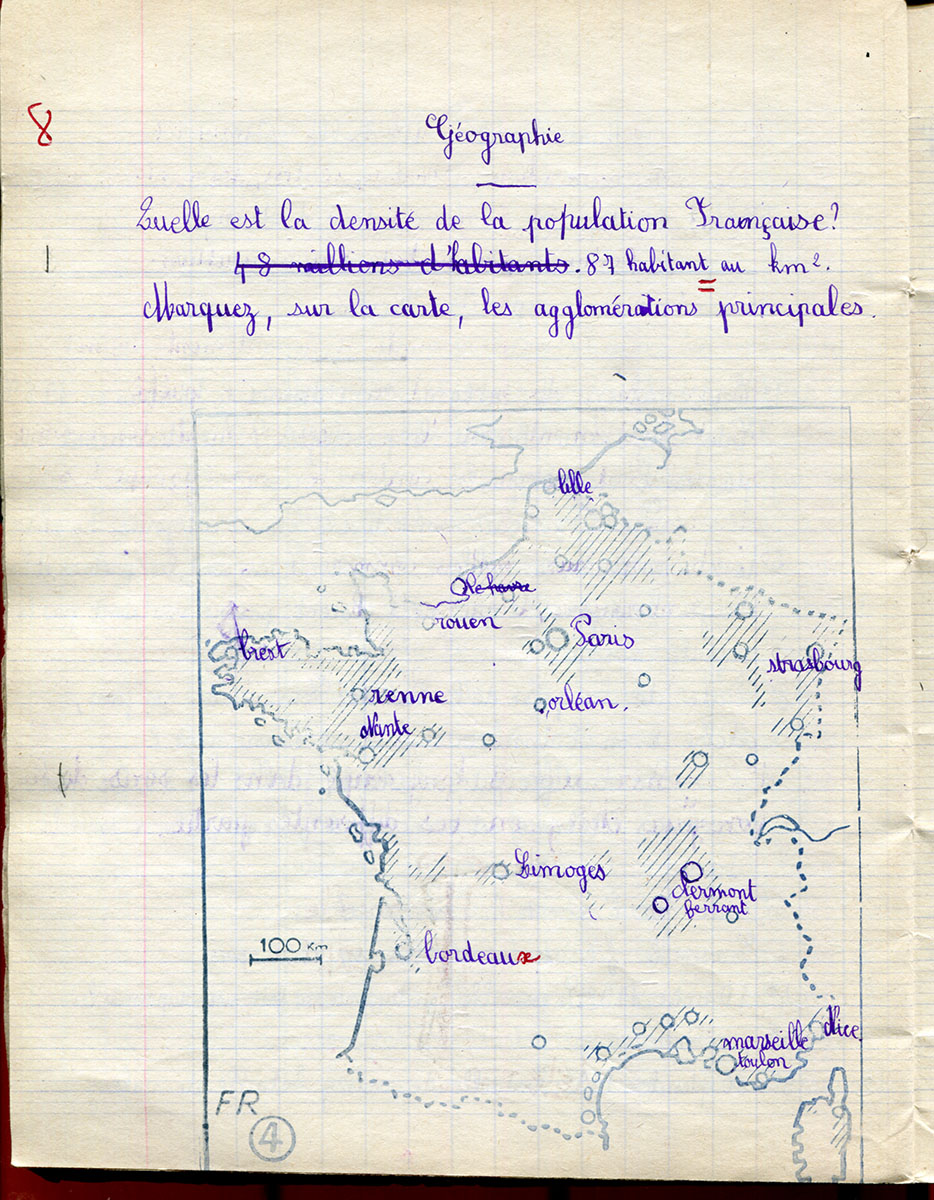 8
Géographie
Quelle est la densité de la population Française?
48 millions d'habitants. 87 habitant au km².
Marquez, sur la carte, les agglomérations principales.
lille
le havre
rouen
Paris
brest
strasbourg
renne
orléan.
Nante
Limoges
clermont
ferrant
bordeaux
100 Km
Nice
marseille
toulon
FR
4